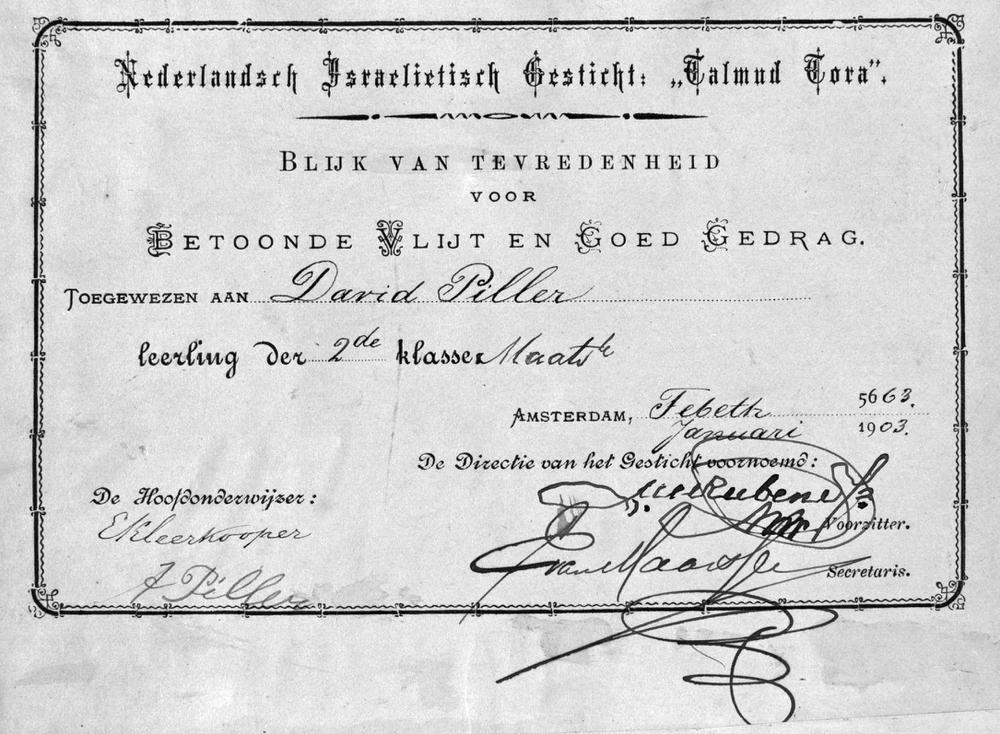 Nederlandsch Israelietisch Gesticht: „Talmud Tora".
BLIJK VAN TEVREDENHEID
VOOR
BETOONDE VLIJT EN GOED GEDRAG.
TOEGEWEZEN AAN David Piller
leerling der 2de klasse
AMSTERDAM, Tebeth 5663.
Januari 1903.
De Directie van het Gesticht voornoemd:
De Hoofdonderwijzer:
Voorzitter.
EKleerkooper
Secretaris.
A Piller